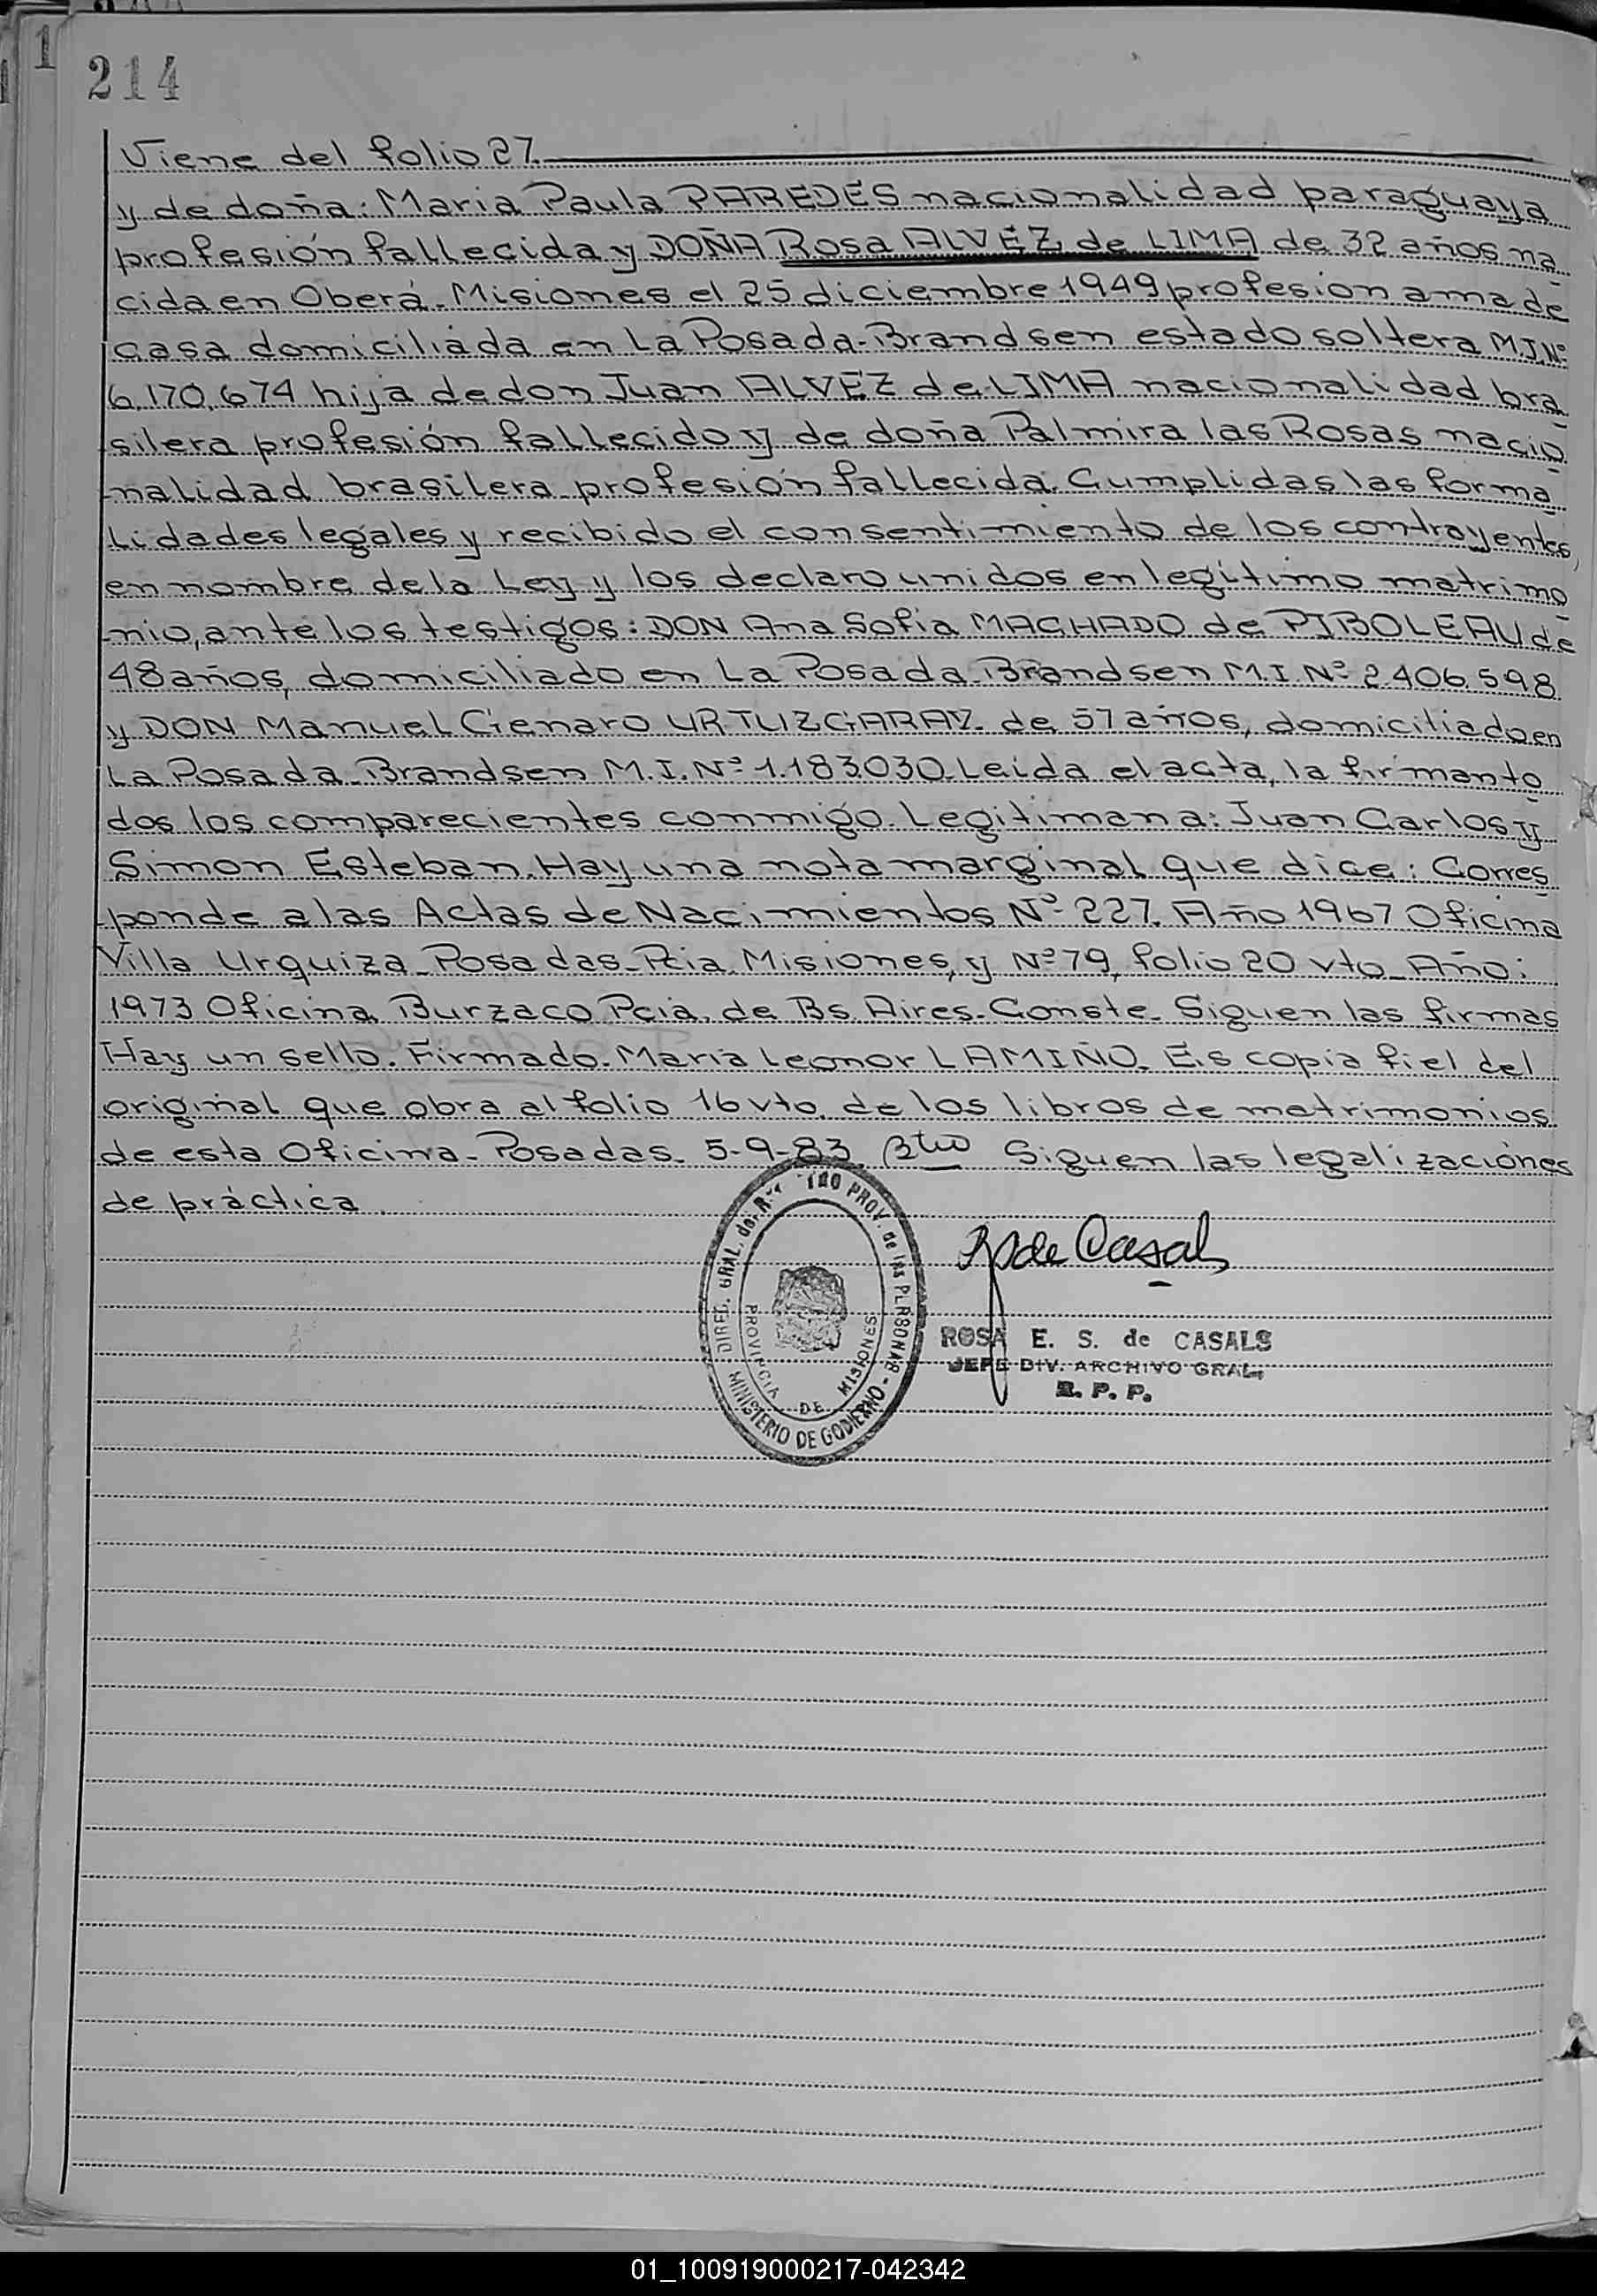 1
214
Viene del folio 27.
y de doña: Maria Paula PAREDES nacionalidad paraguaya
profesión fallecida y DOÑA Rosa ALVEZ de LIMA de 32 años na
cida en Oberá - Misiones el 25 diciembre 1949 profesion ama de
casa domiciliada en La Posada-Brandsen estado soltera M.I.Nº
6.170.674 hija de don Juan ALVEZ de LIMA nacionalidad bra
silera profesión fallecido y de doña Palmira las Rosas nacio
nalidad brasilera profesión fallecida. Cumplidas las forma
lidades legales y recibido el consentimiento de los contrayentes,
en nombre de la Ley y los declaro unidos en legítimo matrimo
nio, ante los testigos: DON Ana Sofia MACHADO de PIBOLEAU de
48 años, domiciliado en La Posada Brandsen M.I. Nº 2.406.598
y DON Manuel Genaro URTUIZGARAY. de 57 años, domiciliado en
La Posada-Brandsen M.I. Nº 1.183.030. Leida el acta, la firman to
dos los comparecientes conmigo. Legitiman a: Juan Carlos y
Simon Esteban. Hay una nota marginal que dice: Corres
ponde a las Actas de Nacimientos Nº 227. Año 1967 Oficina
Villa Urquiza - Posadas - Pcia. Misiones, y Nº 79, folio 20 vto Año:
1973 Oficina Burzaco Pcia. de Bs. Aires - Conste - Siguen las firmas
Hay un sello. Firmado. Maria Leonor LAMIÑO. Es copia fiel del
original que obra al folio 16 vto. de los libros de matrimonios
de esta Oficina - Posadas. 5-9-83. Siguen las legalizaciones
de práctica
de Casals
ROSA E. S. de CASALS
JEFE DIV. ARCHIVO GRAL.
R. P. P.
DIREC. GRAL. del PROV. de las PERSONAS - MINISTERIO DE GOBIERNO
PROVINCIA DE MISIONES
01_100919000217-042342